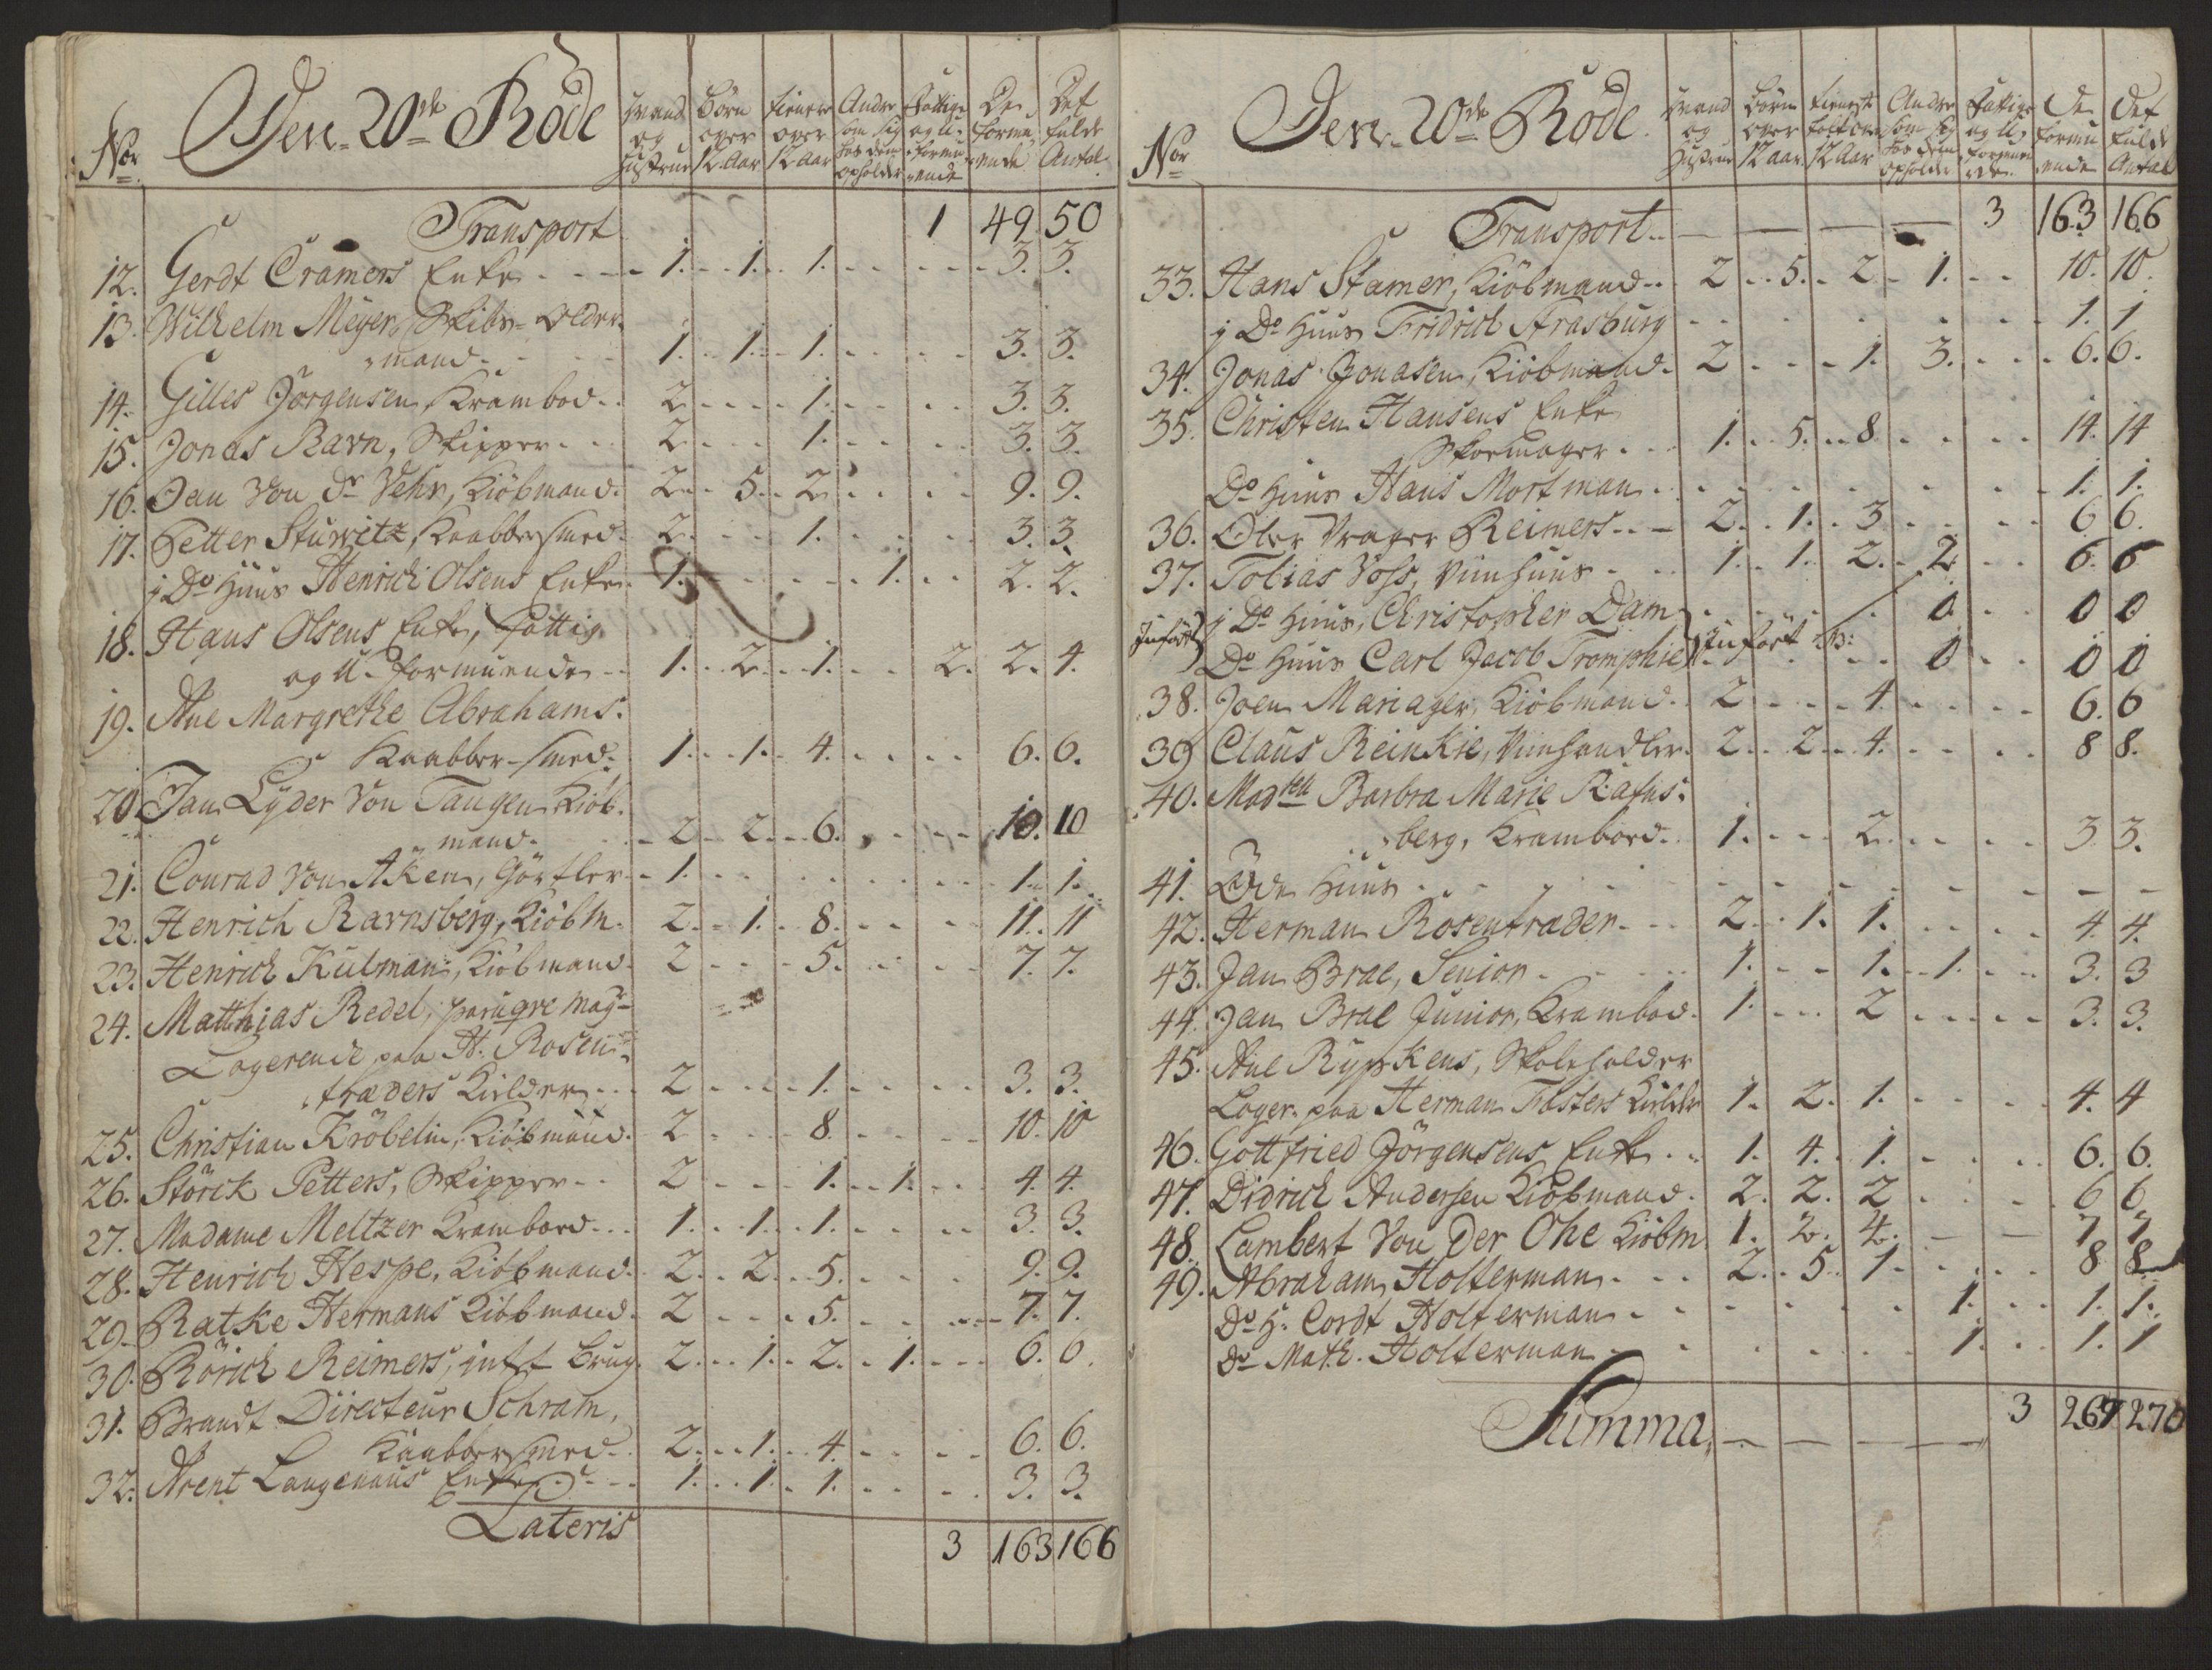 Den 20de Rode
No. Mand og Hustrue Börn over 12 Aar tienere over 12 Aar Andre som sig hos dem opholder Fattige og U-formuende De formuende Det fulde Antal
Transport 1 49 50
12. Gerdt Cramers Enke 1. 1. 1. 3. 3.
13. Wilhelm Meyer, Skibs-Older-
mand 1. 1. 1. 3. 3.
14. Gilles Jörgensen, Krambod 2 1. 3. 3.
15. Jonas Ravn, Skipper 2 1. 3. 3.
16. Jan Von dr Vehr, Kiöbmand 2 5 2 9. 9.
17. Petter Stuwitz, Kaabbersmed 2 1. 3. 3.
j Do Huus Henrich Olsens Enke 1. 1. 2. 2.
18. Hans Olsens Enke, fattig
og U-formuende 1. 2. 1. 2. 2. 4.
19. Ane Margrethe Abrahams.
Kaabber-smed. 1. 1. 4. 6. 6.
20. Jan Lyder Von Tangen Kiöb-
mand. 2 2. 6. 10. 10
21. Conrad Von Aken, Görtler 1. 1. 1.
22. Henrich Ravnsberg, Kiöbm. 2. 1. 8. 11. 11
23. Henrich Kulman, Kiöbmand 2 5. 7. 7.
24. Matthias Redel, paruqve mag-
Logerende paa H. Rosen-
traders Kielder 2 1. 3. 3.
25. Christian Kröbelin, Kiöbmand. 2 8. 10. 10
26. Störck Petters, Skipper 2 1. 1. 4. 4.
27. Madame Meltzer Krambod 1. 1. 1. 3. 3.
28. Henrich Hespe, Kiöbmand. 2. 2. 5. 9. 9.
29. Ratke Hermans Kiöbmand. 2 5. 7. 7.
30. Rörich Reimers, intet brug. 2. 1. 2. 1. 6. 6.
31. Brandt Directeur Schram,
Kaabbersmed 2. 1. 4. 6. 6.
32. Arent Langenaus Enke 1. 1. 1. 3. 3.
Lateris 3 163 166
Den 20de Rode.
No. Mand og Hustrue Börn over 12 aar tieneste folk over 12 Aar Andre som sig hos dem opholder Fattige og U-formuende De formuende Det fulde Antal
Transport 3 163 166
33. Hans Stamer, Kiöbmand 2 5. 2 1. 10. 10.
j Do Huus Fridrich Strasburg 1. 1
34. Jonas Jonasen, Kiöbmand. 2 1. 3. 6. 6.
35. Christen Hansens Enke
Skoemager 1. 5. 8 14. 14
Do Huus Hans Mortman 1. 1.
36. Öler Vrager Reimers 2. 1. 3 6 6.
37. Tobias Voss, Viinhuus 1. 1. 2. 2. 6. 6
j Do Huus, Christopher Dam 0 0 0
Do Huus Carl Jacob Tromphie 0 0 0
38. Joen Mariager, Kiöbmand. 2 4. 6. 6
39 Claus Reinkie, Viinhandler 2. 2. 4. 8 8.
40. Madsell Barbra Marie Rafns-
berg, Krambod. 1. 2. 3 3.
41. Öde Huus - -
42. Herman Rosentrader 2. 1. 1. 4. 4.
43. Jan Brae, Senior 1. 1. 1. 3. 3
44. Jan Brae Junior, Krambod. 1. 2 3. 3.
45. Ane Rypkens, Skoleholder
Loger. paa Herman Fasters Kielder 1. 2. 1. 4. 4
46. Gottfried Jörgensens Enke 1. 4. 1. 6. 6.
47. Didrich Andersen Kiöbmand. 2. 2. 2 6 6.
48. Lambert Von Der Ohe Kiöbm. 1. 2. 4. 7 7
49. Abraham Holterman 2. 5. 1. 8 8
Do H. Cordt Holterman 1. 1. 1.
Do Math. Holterman 1. 1. 1
Summa, 3 267 270